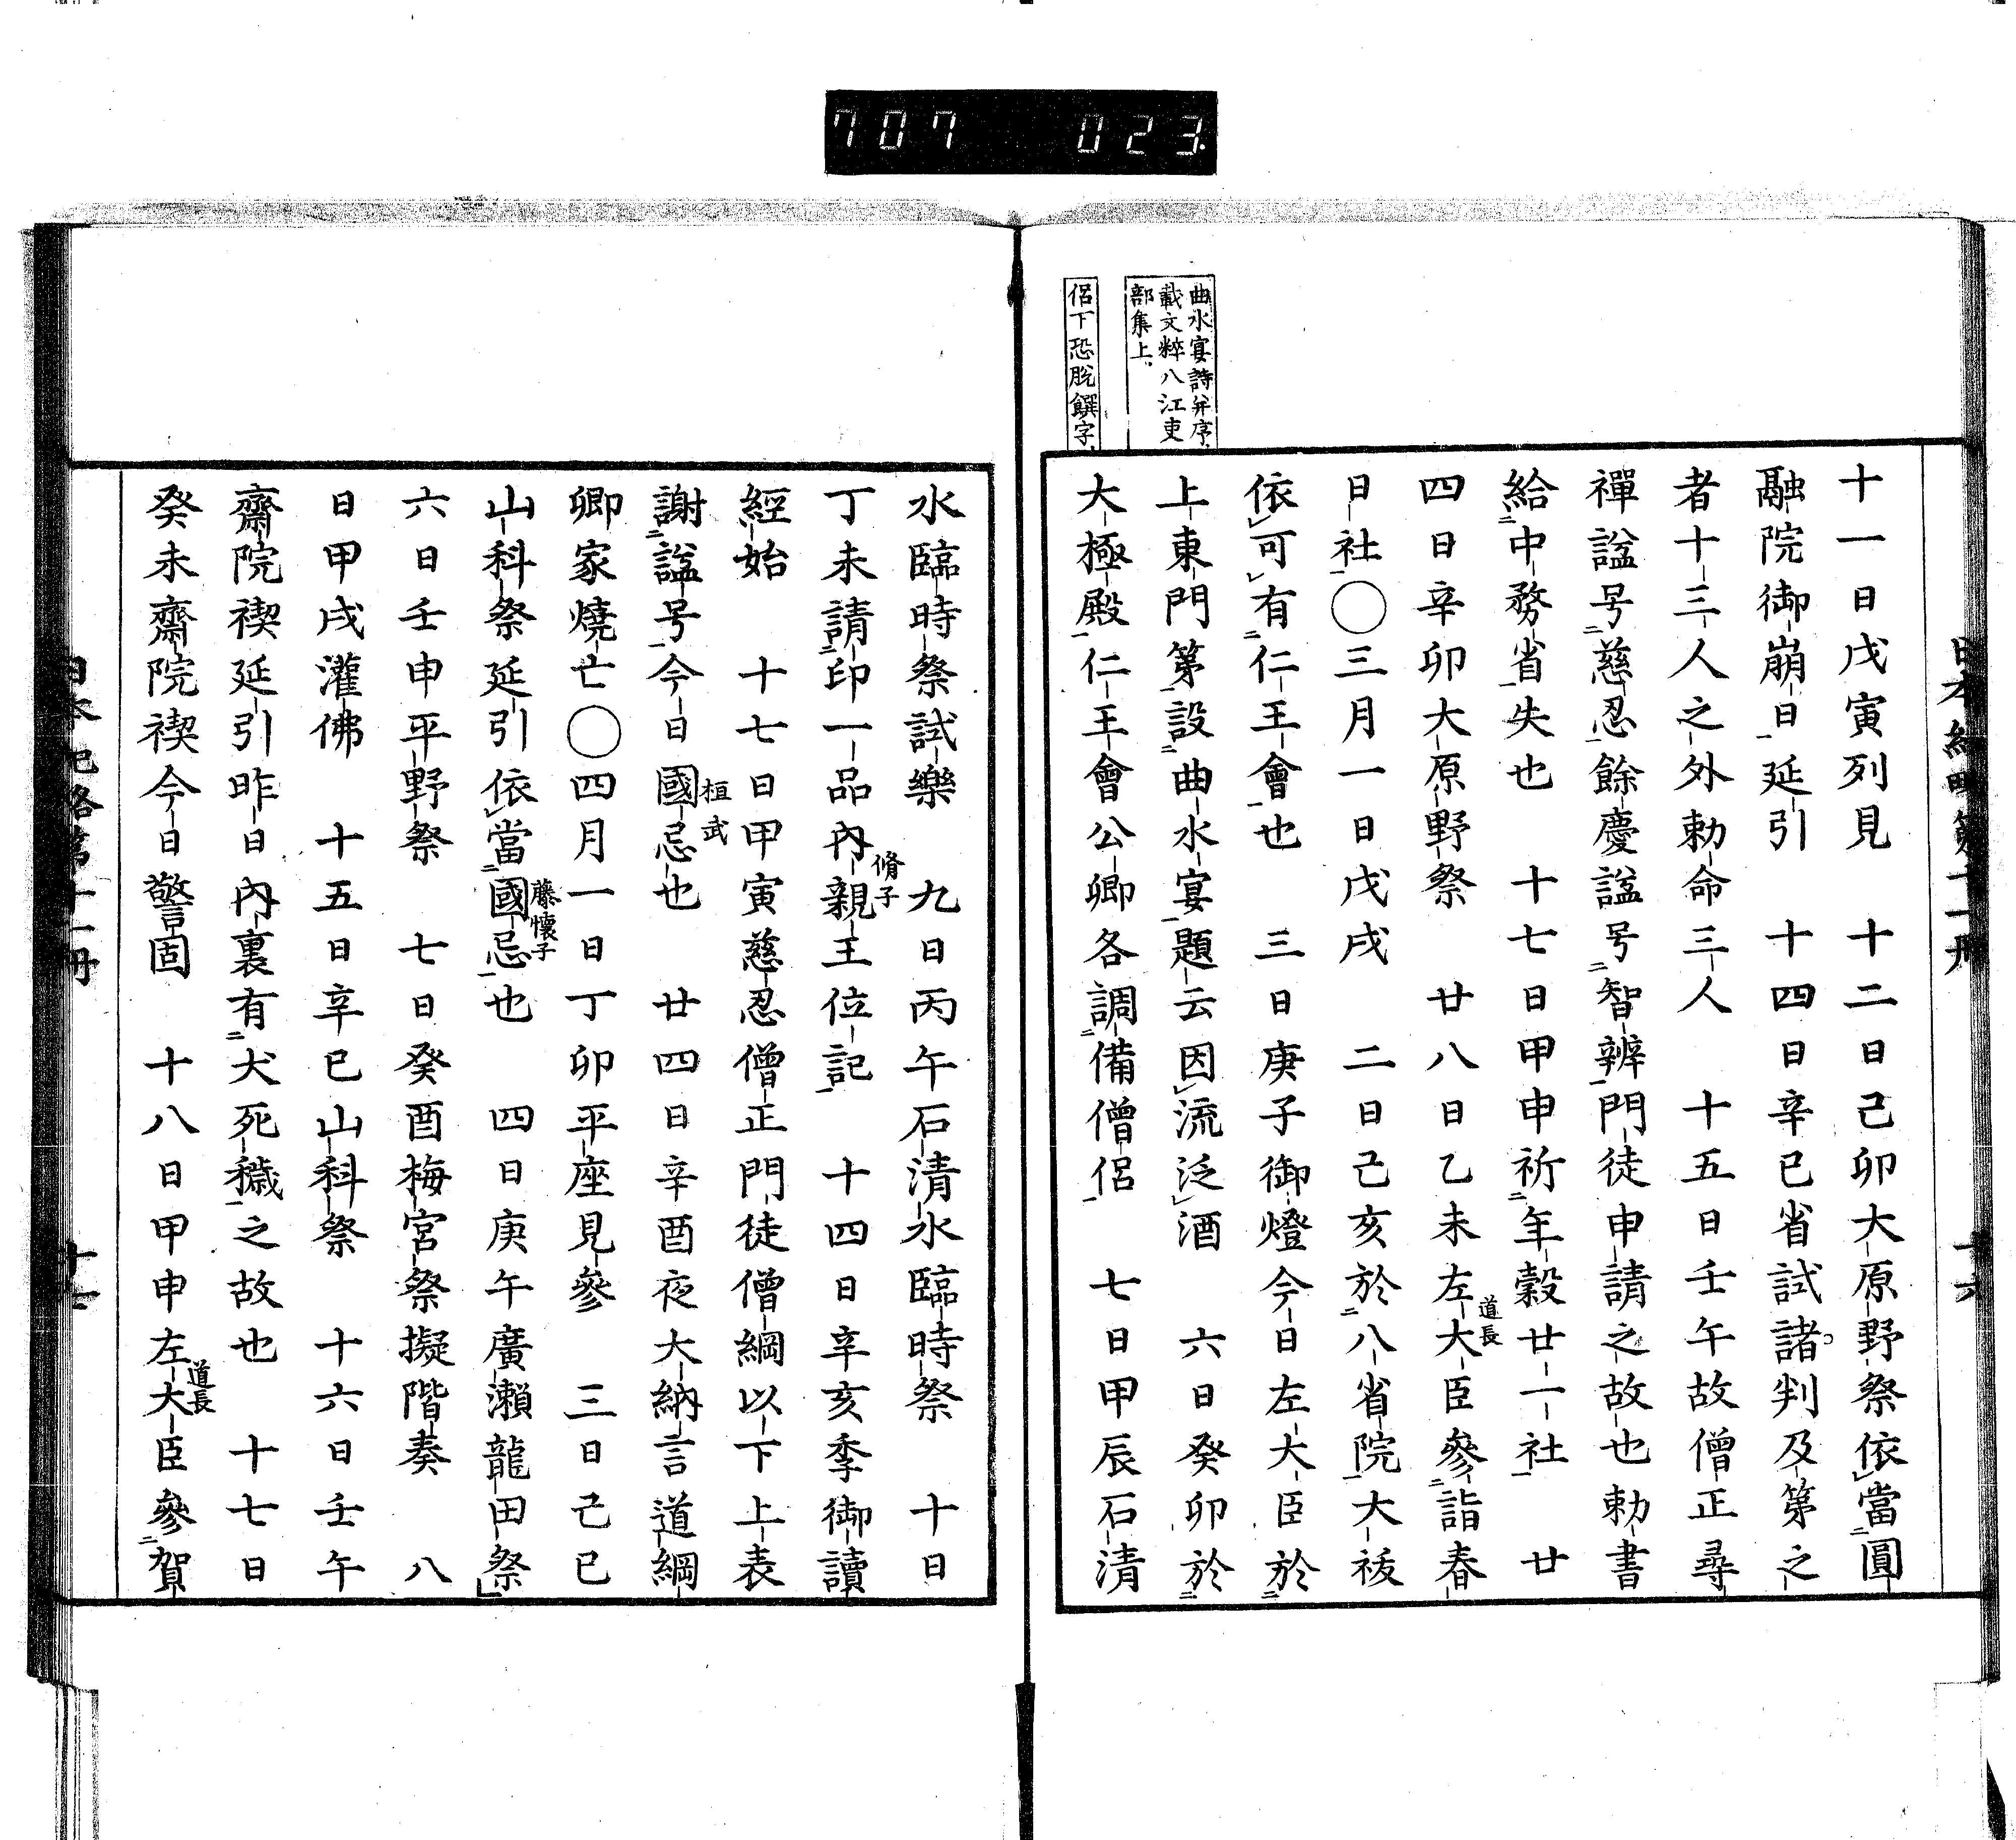 707 023
曲水宴詩并序
載文粹八江吏
部集上
侶下恐脫饌字
十一日戊寅列見 十二日己卯大原野祭依當圓
融院御崩日延引 十四日辛巳省試諸判及第之
者十三人之外勅命三人 十五日壬午故僧正尋
禪諡号慈忍餘慶諡号智辨門徒申請之故也勅書
給中務省失也 十七日甲申祈年穀廿一社 廿
四日辛卯大原野祭 廿八日乙未左大臣參詣春
道長
日社〇三月一日戊戌 二日己亥於八省院大祓
依可有仁王會也 三日庚子御燈今日左大臣於
上東門第設曲水宴題云因流泛酒 六日癸卯於
大極殿仁王會公卿各調備僧侶 七日甲辰石清
水臨時祭試樂 九日丙午石清水臨時祭 十日
丁未請印一品內親王位記 十四日辛亥季御讀
脩子
經始 十七日甲寅慈忍僧正門徒僧綱以下上表
謝諡号今日國忌也 廿四日辛酉夜大納言道綱
桓武
卿家燒亡〇四月一日丁卯平座見參 三日己巳
山科祭延引依當國忌也 四日庚午廣瀨龍田祭
藤懷子
六日壬申平野祭 七日癸酉梅宮祭擬階奏 八
日甲戌灌佛 十五日辛巳山科祭 十六日壬午
齋院禊延引昨日內裏有犬死穢之故也 十七日
癸未齋院禊今日警固 十八日甲申左大臣參賀
道長